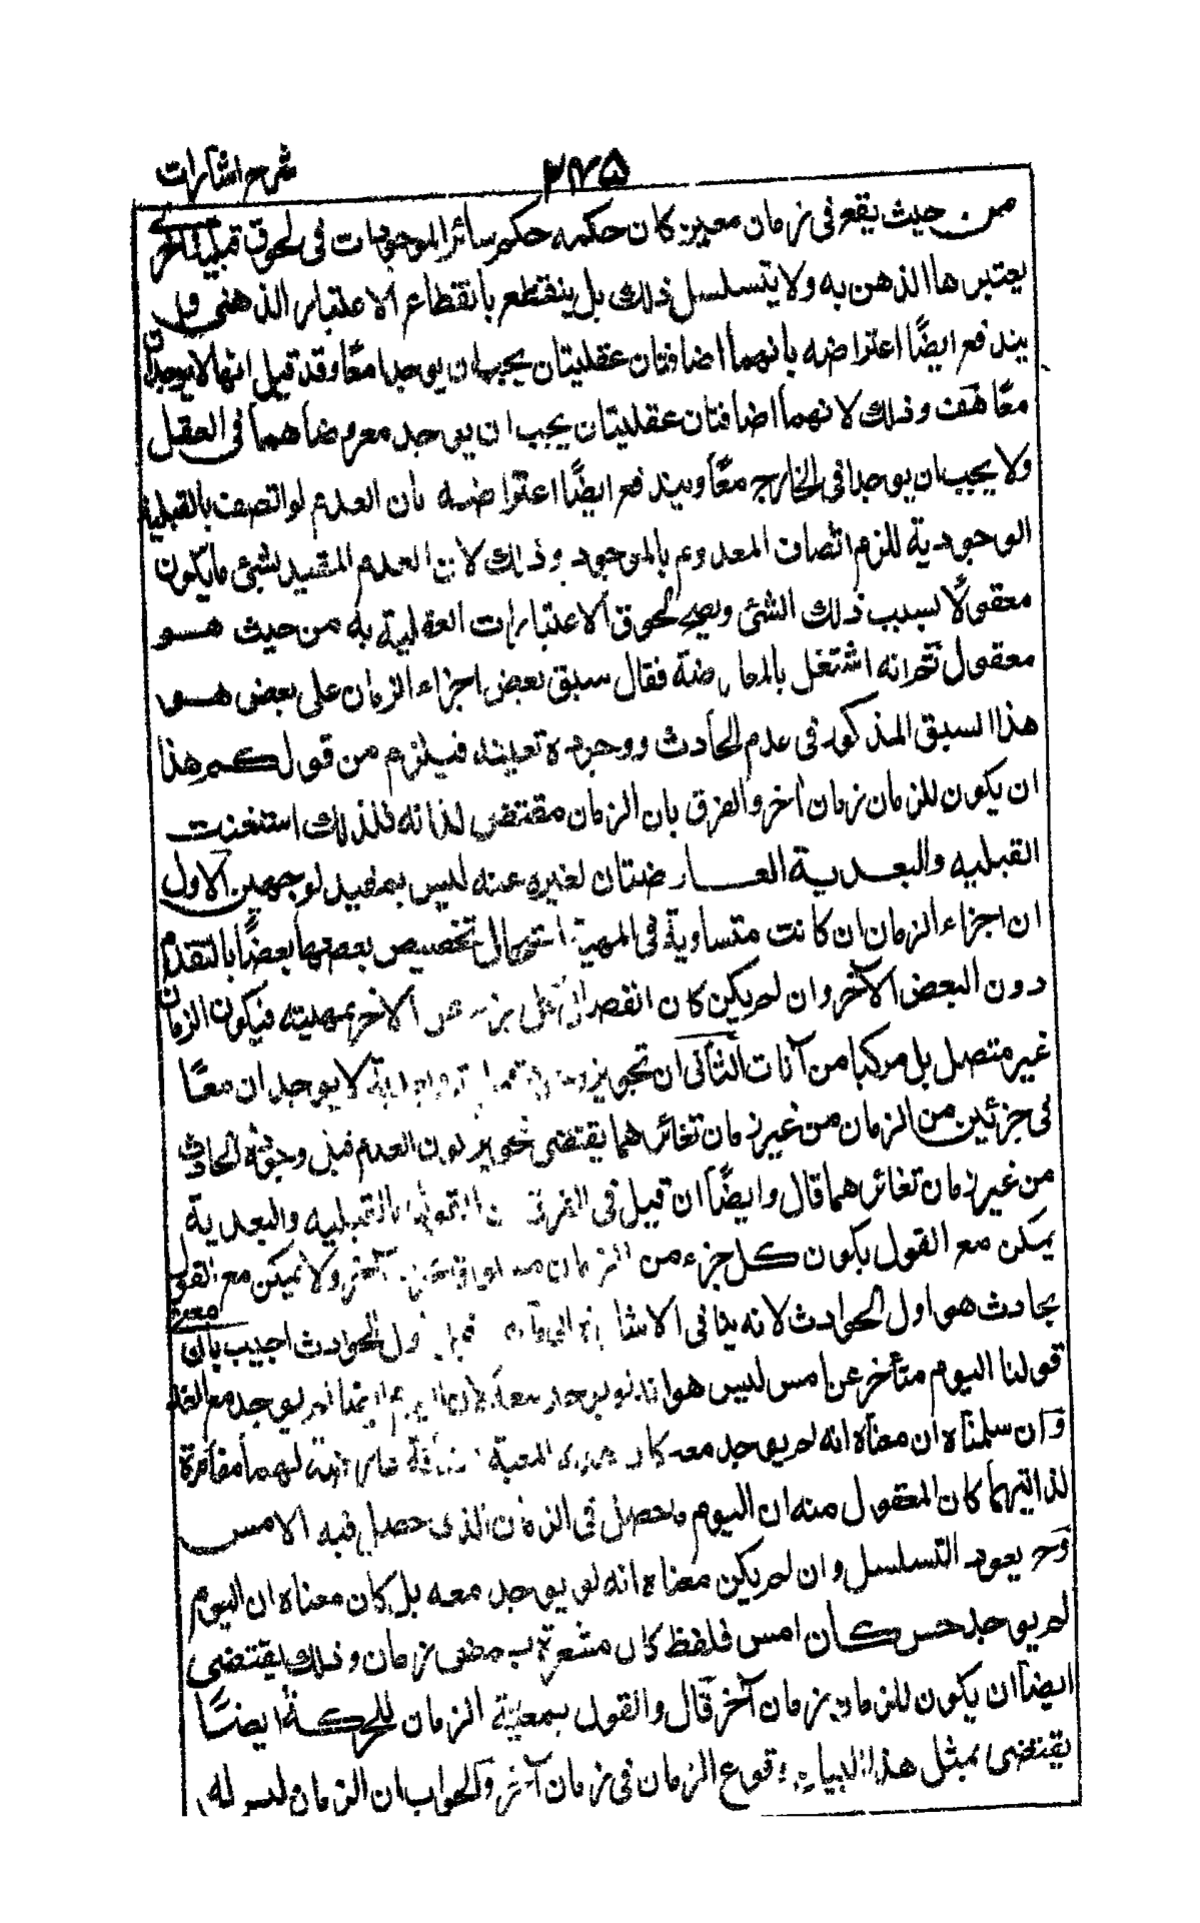 شرح اشارات
٢٣٥
من حيث يقع فى زمان معين كان حكمه حكم سائر الموجودات فى لحوق قبلية اخرى
يعتبرها الذهن به ولا يتسلسل ذلك بل ينقطع بانقطاع الاعتبار الذهنى و
يندفع ايضًا اعتراضه بانهما اضافتان عقليتان يجب ان يوجدا معًا وقد قيل انهما لا يوجدان
معًا هف وذلك لانهما اضافتان عقليتان يجب ان يوجد معروضاهما فى العقل
ولا يجب ان يوجدا فى الخارج معًا ويندفع ايضًا اعتراضه بان العدم لو اتصف بالقبلية
الوجودية للزم اتصاف المعدوم بالموجود وذلك لان العدم المقيد لشئ ما يكون
معقولًا بسبب ذلك الشئ ويصح لحوق الاعتبارات العقلية به من حيث هو
معقول ثم انه اشتغل بالمعارضة فقال سبق بعض اجزاء الزمان على بعض هو
هذا السبق المذكور فى عدم الحادث ووجوده تعينه فيلزم من قولكم هذا
ان يكون للزمان زمان آخر والفرق بان الزمان مقتض لذاته فلذلك استغنت
القبليه والبعدية العارضتان لغيره عنه ليس بمفيد لوجهين الاول
ان اجزاء الزمان ان كانت متساوية فى المهية استحال تخصيص بعضها بعضًا بالتقدم
دون البعض الآخر وان لم يكن كان انفصال كل جزء عن الآخر بمهيته فيكون الزمان
غير متصل بل مركبا من آنات الثانى ان تجويز لا يوجدان معًا
فى جزئين من الزمان من غير زمان تغائرهما يقتضى تجويز كون العدم قبل وجود الحادث
من غير زمان تغائرهما قال وايضًا ان قيل فى الفرق ان القول بالقبليه والبعدية
يمكن مع القول بكون كل جزء من الزمان مسبوقا بجزء آخر ولا يمكن مع القول
بحادث هو اول الحوادث لانه ينافى الاشارة الى ما قبل اول الحوادث اجيب بان معنى
قولنا اليوم متأخر عن امس ليس هو انه لم يوجد معه لان اليوم ايضا لم يوجد مع الغد
وان سلمناه ان معناه انه لم يوجد معه كان المعية لهما مغائرة
لذاتيهما كان المعقول منه ان اليوم ما حصل فى الزمان الذى حصل فيه الامس
وح يعود التسلسل وان لم يكن معناه انه لم يوجد معه بل كان معناه ان اليوم
لم يوجد حين كان امس فلفظ كان مشعرة بمضى زمان وذلك يقتضى
ايضًا ان يكون للزمان زمان آخر قال والقول بمعية الزمان للحركة ايضًا
يقتضى بمثل هذا البيان وقوع الزمان فى زمان آخر والجواب ان الزمان ليس له